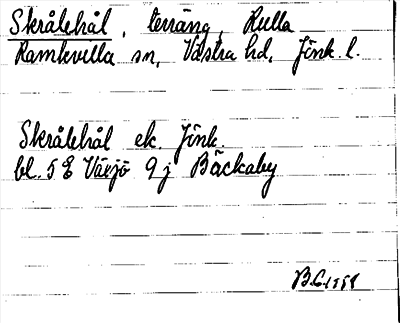 Skrålehål, terräng, Hulla
Ramkvilla sn, Västra hd, Jönk. l.
Skrålehål ek. Jönk.
bl. 5 E Växjö 9 j Bäckaby